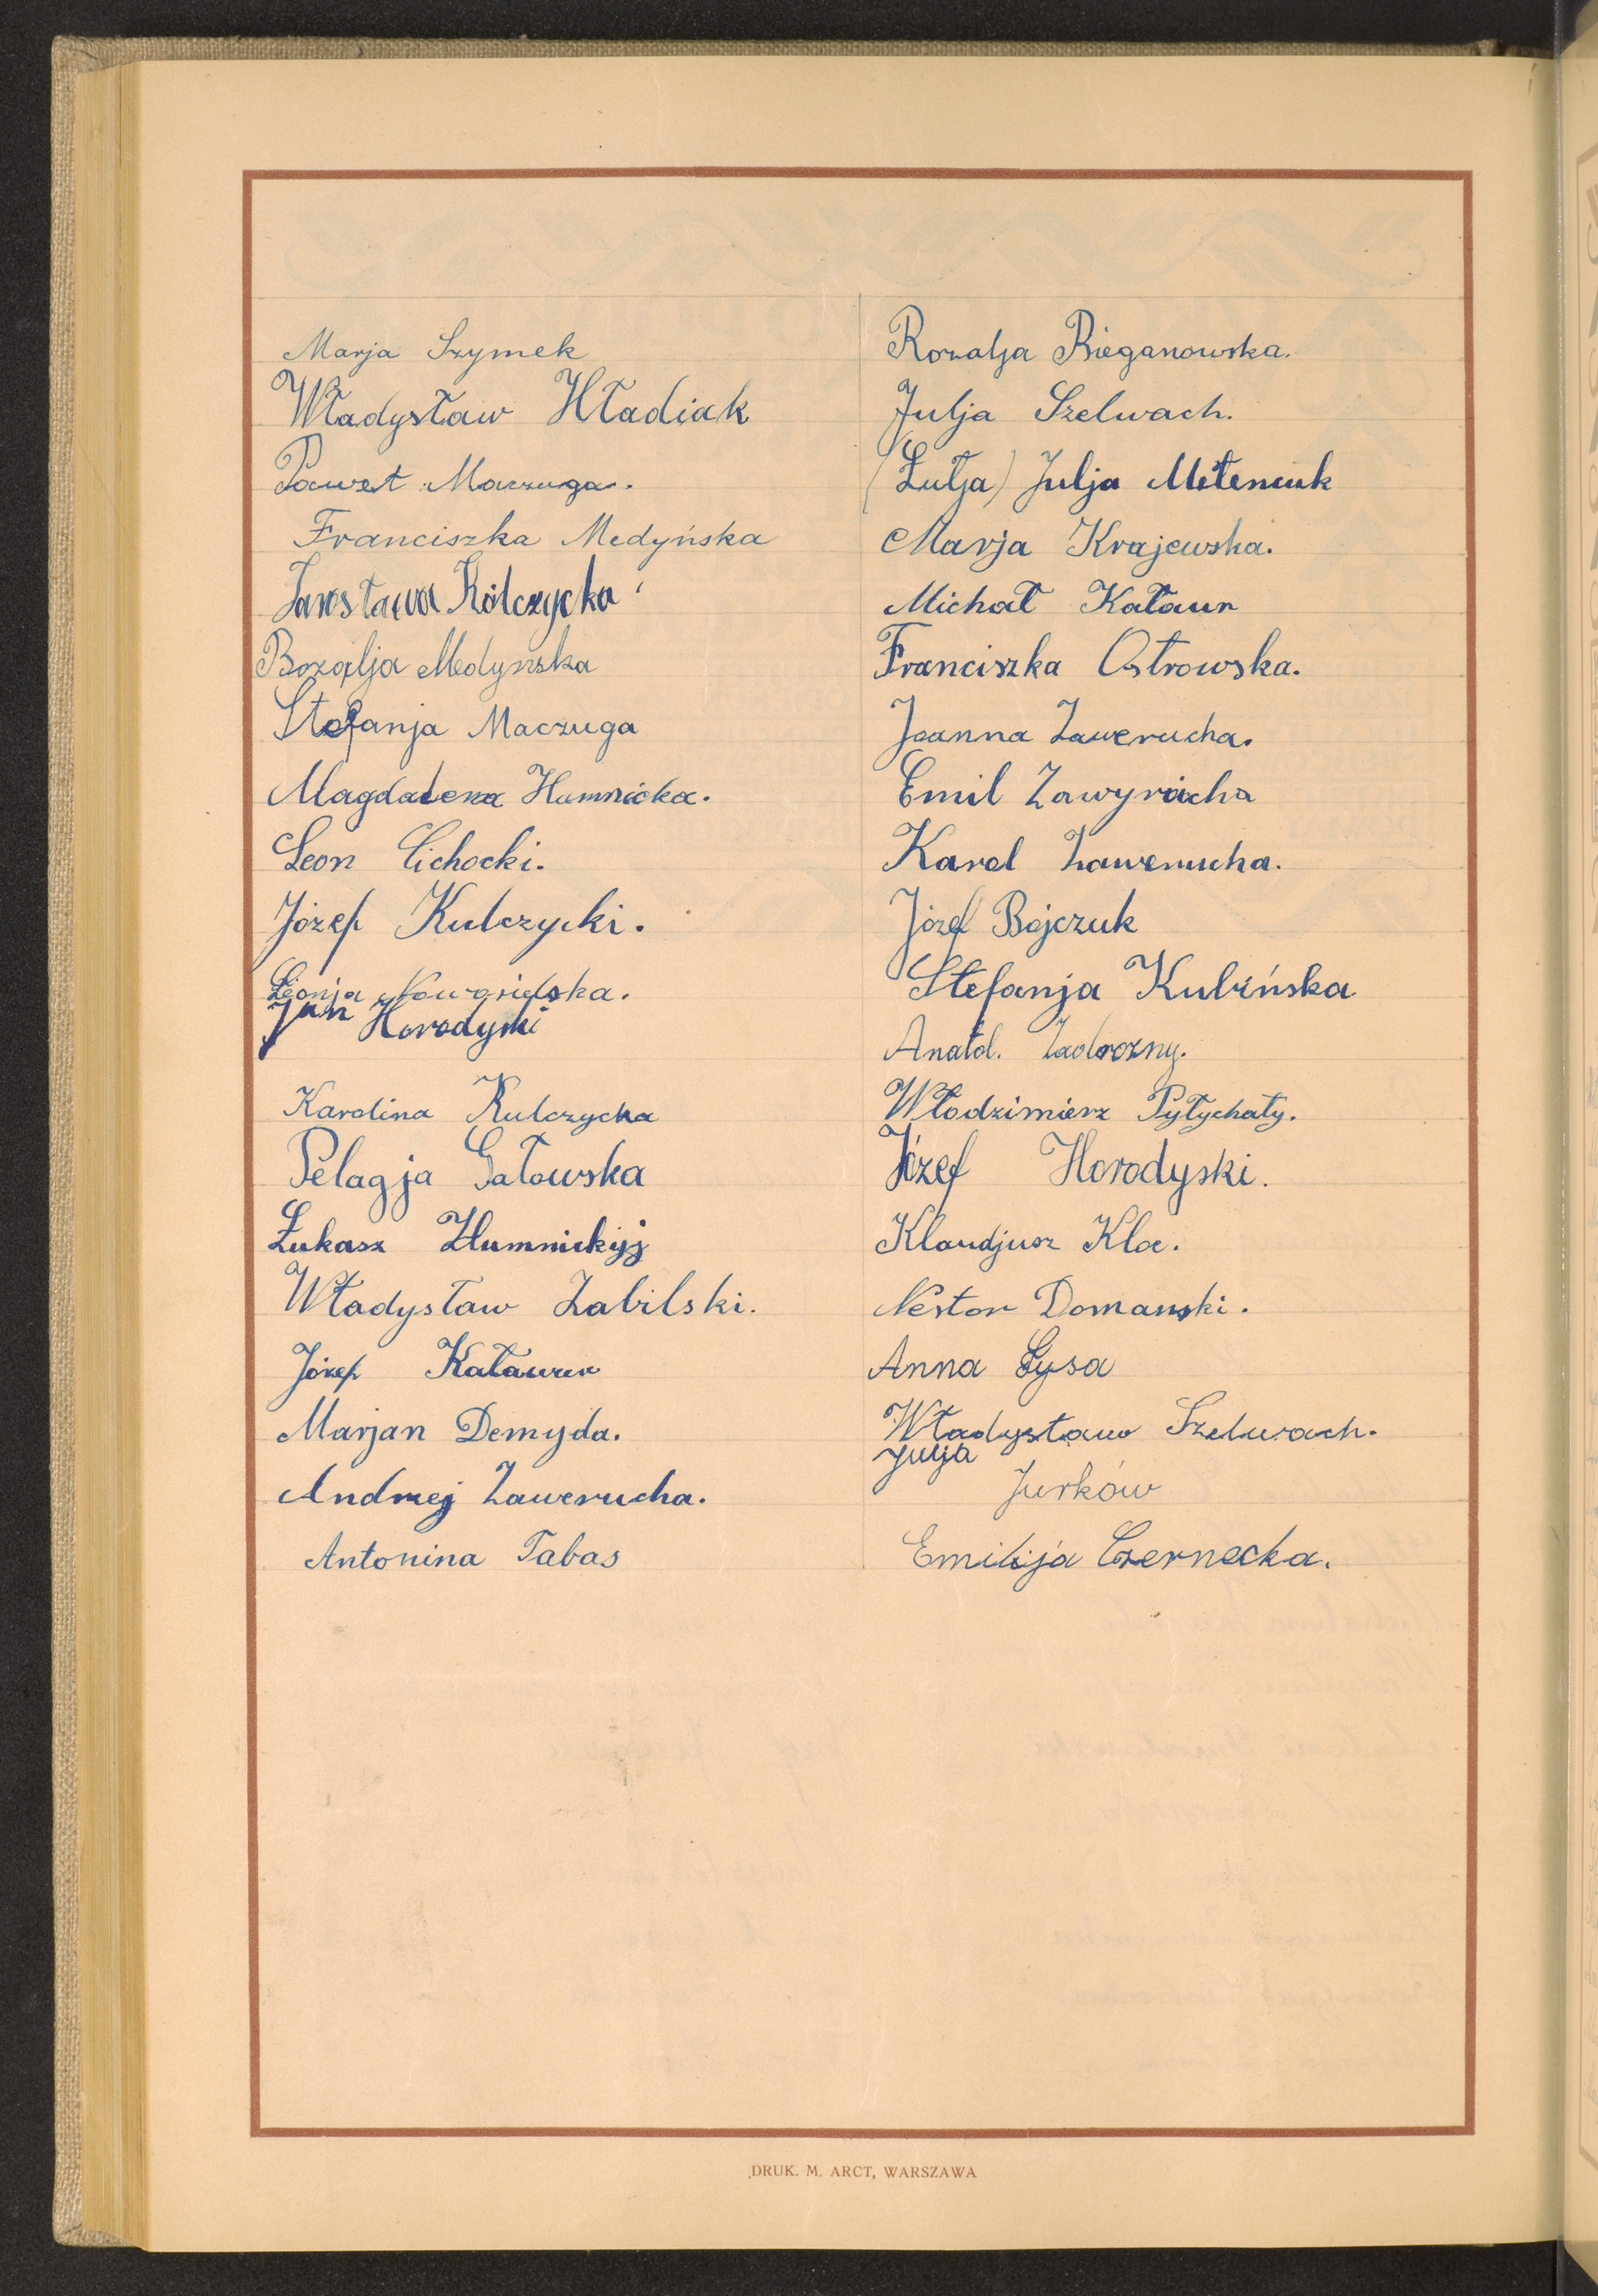 Marja Szymek
Władysław Hładiak
Paweł Maczuga.
Franciszka Medyńska
Jarosława Kólczycka
Rozalja Medynska
Stefanja Maczuga
Magdalena Humnicka.
Leon Cichocki.
Józef Kulczycki.
Leonja
Jan Horodyski
Karolina Kulczycka
Pelagja Gałowska
Łukasz Humnickyj
Władysław Zabilski.
Józef Kataur
Marjan Demyda.
Andrzej Zawerucha.
Antonina Tabas
Rozalja Bieganowska.
Julja Szelwach.
(Lutja) Julja
Marja Krajewska.
Michał Kataur
Franciszka Ostrowska.
Joanna Zawerucha.
Emil Zawyrucha
Karol Zawerucha.
Józef Bojczuk
Stefanja Kubińska
Anatol. Zadrozny.
Włodzimierz Pyłychaty.
Józef Horodyski.
Klaudjusz Kloc.
Nestor Domanski.
Anna Łysa
Władysław Szelwach.
Julja
Jurków
Emilija Czernecka.
DRUK. M. ARCT, WARSZAWA